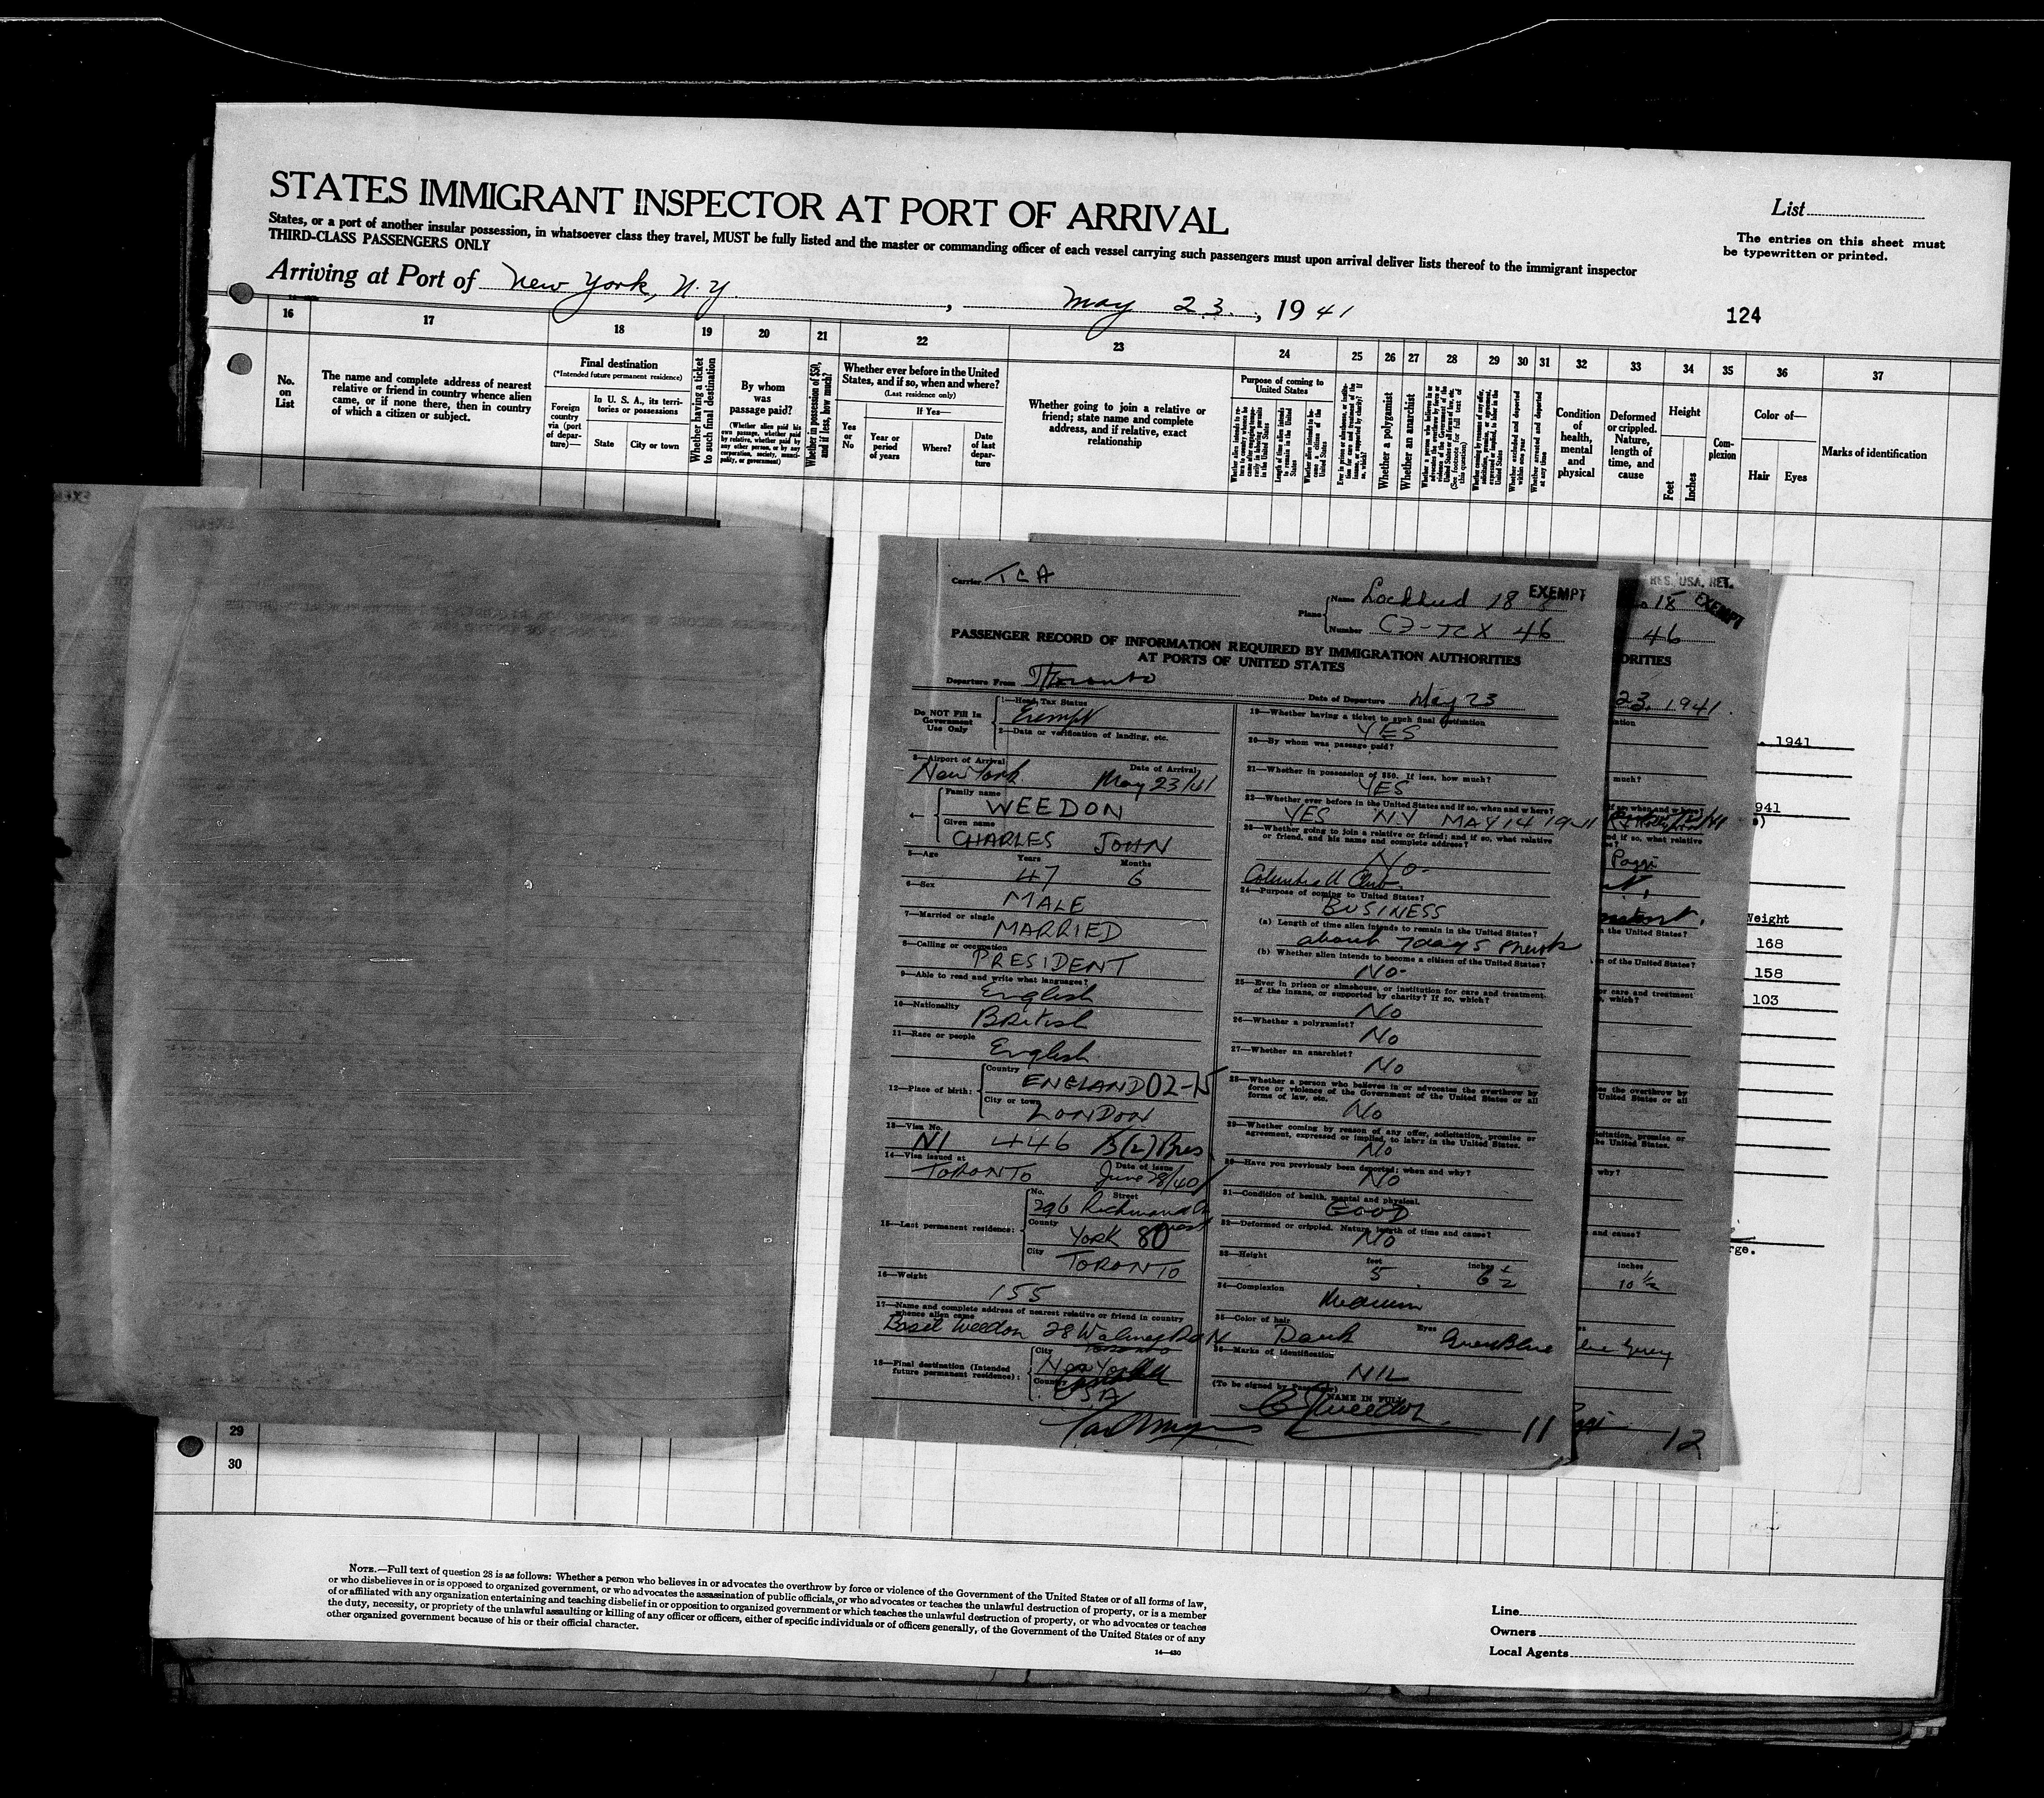 STATES IMMIGRANT INSPECTOR AT PORT OF ARRIVAL
States, or a port of another insular possession, in whatsoever class they travel, MUST be fully listed and the master or commanding officer of each vessel carrying such passengers must upon arrival deliver lists thereof to the immigrant inspector
THIRD-CLASS PASSENGERS ONLY
List
The entries on this sheet must
be typewritten or printed.
Arriving at Port of New York, N.Y. , May 23 , 1941
124
16 17 18 19 20 21 22 23 24 25 26 27 28 29 30 31 32 33 34 35 36 37
No.
on
List
The name and complete address of nearest
relative or friend in country whence alien
came, or if none there, then in country
of which a citizen or subject.
Final destination
(*Intended future permanent residence)
Foreign
country
via (port
of depar-
ture)—
In U. S. A., its terri-
tories or possessions
State
City or town
Whether having a ticket
to such final destination
By whom
was
passage paid?
(Whether alien paid his
own passage, whether paid
by relative, whether paid by
any other person, or by any
corporation, society, munici-
pality, or government)
Whether in possession of $50,
and if less, how much?
Whether ever before in the United
States, and if so, when and where?
(Last residence only)
Yes
or
No
If Yes—
Year or
period
of years
Where?
Date
of last
depar-
ture
Whether going to join a relative or
friend; state name and complete
address, and if relative, exact
relationship
Purpose of coming to
United States
Length of time alien intends
to remain in the United
States
Whether a polygamist
Whether an anarchist
Whether excluded and deported
within one year
Whether arrested and deported
at any time
Condition
of
health,
mental
and
physical
Deformed
or crippled.
Nature,
length of
time, and
cause
Height
Feet
Inches
Com-
plexion
Color of—
Hair
Eyes
Marks of identification
Carrier TCA
Plane
Name Lockheed 18
EXEMPT
Number CF-TCX 46
PASSENGER RECORD OF INFORMATION REQUIRED BY IMMIGRATION AUTHORITIES
AT PORTS OF UNITED STATES
Departure From Toronto
Date of Departure May 23
Do NOT Fill In
Government
Use Only
1—Head Tax Status
Exempt
2—Date or verification of landing, etc.
3—Airport of Arrival
Date of Arrival
New York May 23/41
4—
Family name
WEEDON
Given name
CHARLES JOHN
5—Age
Years
Months
47 6
6—Sex
MALE
7—Married or single
MARRIED
8—Calling or occupation
PRESIDENT
9—Able to read and write what languages?
English
10—Nationality
British
11—Race or people
English
12—Place of birth:
Country
ENGLAND 02-15
City or town
LONDON
13—Visa No.
NI 446 B(2) Pres
14—Visa issued at
Date of issue
TORONTO June 28/40
15—Last permanent residence:
No.
Street
296 Richmond St
West
County
YORK 80
City
TORONTO
16—Weight
155
17—Name and complete address of nearest relative or friend in country
whence alien came
Basil Weedon 28 Walmer Rd
Toronto
18—Final destination (Intended
future permanent residence):
City
New York
Country
USA
19—Whether having a ticket to such final destination
YES
20—By whom was passage paid?
21—Whether in possession of $50. If less, how much?
YES
22—Whether ever before in the United States and if so, when and where?
YES NY MAY 14 1941
23—Whether going to join a relative or friend; and if so, what relative
or friend, and his name and complete address?
No
Columbia U Club.
24—Purpose of coming to United States?
BUSINESS
(a) Length of time alien intends to remain in the United States?
about 7 days
(b) Whether alien intends to become a citizen of the United States?
No
25—Ever in prison or almshouse, or institution for care and treatment
of the insane, or supported by charity? If so, which?
No
26—Whether a polygamist?
No
27—Whether an anarchist?
No
28—Whether a person who believes in or advocates the overthrow by
force or violence of the Government of the United States or all
forms of law, etc.
No
29—Whether coming by reason of any offer, solicitation, promise or
agreement, expressed or implied, to labor in the United States.
No
30—Have you previously been deported; when and why?
No
31—Condition of health, mental and physical.
GOOD
32—Deformed or crippled. Nature, length of time and cause?
No
33—Height
feet
inches
5 6 1/2
34—Complexion
Medium
35—Color of hair
Eyes
Dark
36—Marks of identification
NIL
(To be signed by Passenger)
NAME IN FULL
C J Weedon
11
RES. USA. RET.
18
EXEMPT
46
ORITIES
23, 1941.
much?
10 1/2
inches
12
1941
941
Weight
168
158
103
rge.
29
30
NOTE.—Full text of question 28 is as follows: Whether a person who believes in or advocates the overthrow by force or violence of the Government of the United States or of all forms of law,
or who disbelieves in or is opposed to organized government, or who advocates the assassination of public officials, or who advocates or teaches the unlawful destruction of property, or is a member
of or affiliated with any organization entertaining and teaching disbelief in or opposition to organized government or which teaches the unlawful destruction of property, or who advocates or teaches
the duty, necessity, or propriety of the unlawful assaulting or killing of any officer or officers, either of specific individuals or of officers generally, of the Government of the United States or of any
other organized government because of his or their official character.
14—430
Line
Owners
Local Agents